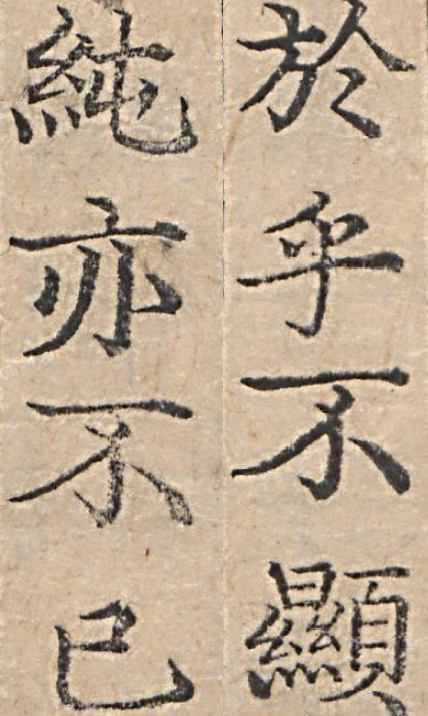 於乎不顯
純亦不已